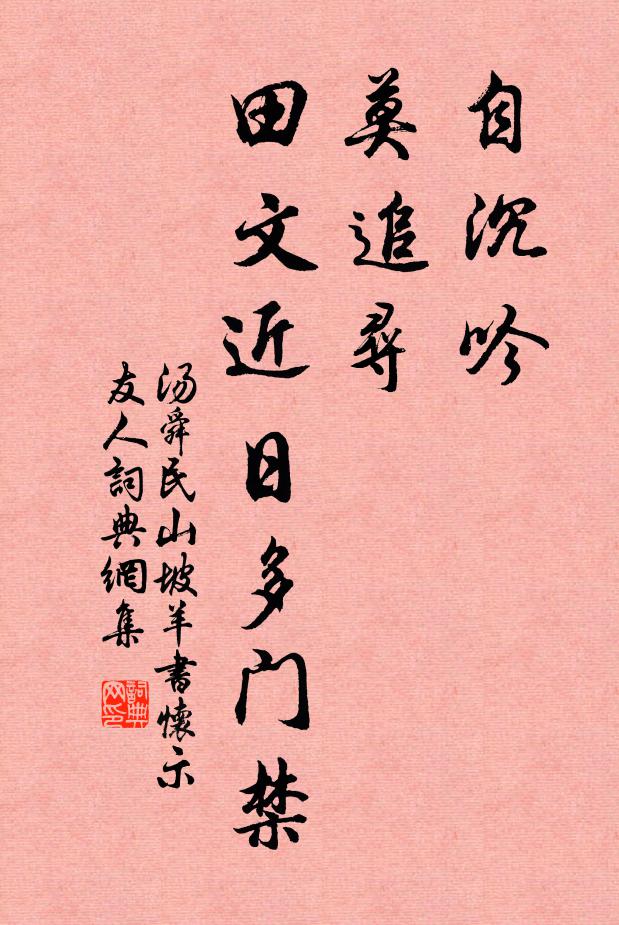 自沉吟
莫追尋
田文近日多門禁
汤舜民山坡羊書懷示
友人詞典網集
詞典
网印